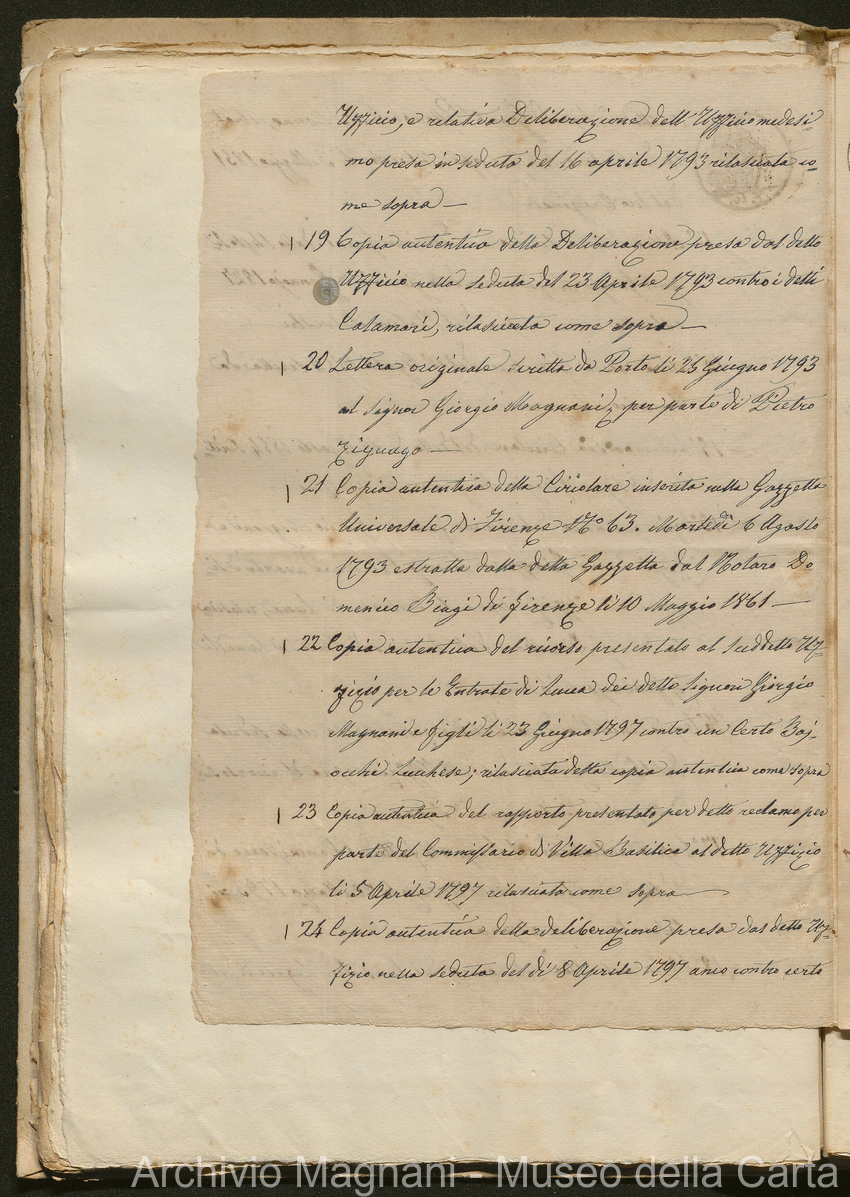 Uffizio, e relativa Deliberazione dell'Uffizio medesi=
mo presa in seduta del 16 aprile 1793 rilasciata co=
me sopra —
19 Copia autentica della Deliberazione presa dal detto
Uffizio nella seduta del 23 Aprile 1793 contro i detti
Calamari, rilasciata come sopra —
20 Lettera originale scritta da Porto li 25 Giugno 1793
al Signor Giorgio Magnani, per parte di Pietro
Zignago —
21 Copia autentica della Circolare inserita nella Gazzetta
Universale di Firenze N° 63. Martedì 6 Agosto
1793 estratta dalla detta Gazzetta dal Notaro Do
menico Biagi di Firenze li 10 Maggio 1861 —
22 Copia autentica del ricorso presentato al suddetto Uf=
fizio per le Entrate di Lucca dei detti Signori Giorgio
Magnani e figli li 23 Giugno 1797 contro un Certo Baj=
occhi Lucchese; rilasciata detta copia autentica come sopra
23 Copia autentica del rapporto presentato per detto reclamo per
parte del Commissario di Villa Basilica al detto Uffizio
li 5 Aprile 1797 rilasciata come sopra —
24 Copia autentica della deliberazione presa dal detto Uf=
fizio nella seduta del dì 8 Aprile 1797 anco contro certo
Archivio Magnani - Museo della Carta